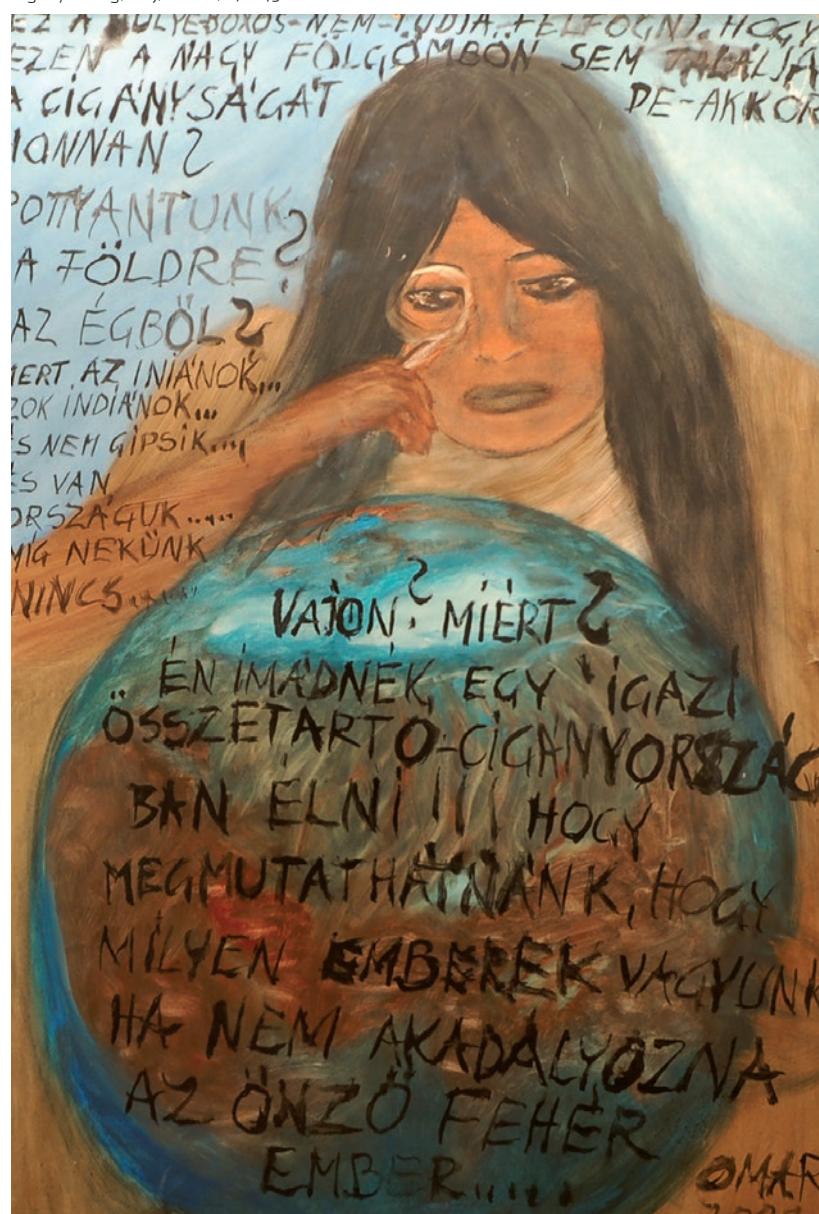 EZ A HÜLYEBOXOS-NEM-TUDJA FELFOGNI. HOGY
EZEN A NAGY FÖLGÖMBÖN SEM TALÁLJA
A CIGÁNYSÁGÁT DE-AKKOR
HONNAN?
POTTYANTUNK
A FÖLDRE?
AZ ÉGBŐL?
MERT AZ INIÁNOK...
AZOK INDIÁNOK...
ÉS NEM GIPSIK....
ÉS VAN
ORSZÁGUK.....
MÍG NEKÜNK
NINCS.....
VAJON? MIÉRT?
ÉN IMÁDNÉK EGY IGAZI
ÖSSZETARTO-CIGÁNYORSZÁG
BAN ÉLNI!!! HOGY
MEGMUTATHATNÁNK, HOGY
MILYEN EMBEREK VAGYUNK
HA NEM AKADÁLYOZNA
AZ ÖNZŐ FEHÉR
EMBER.....
OMAR